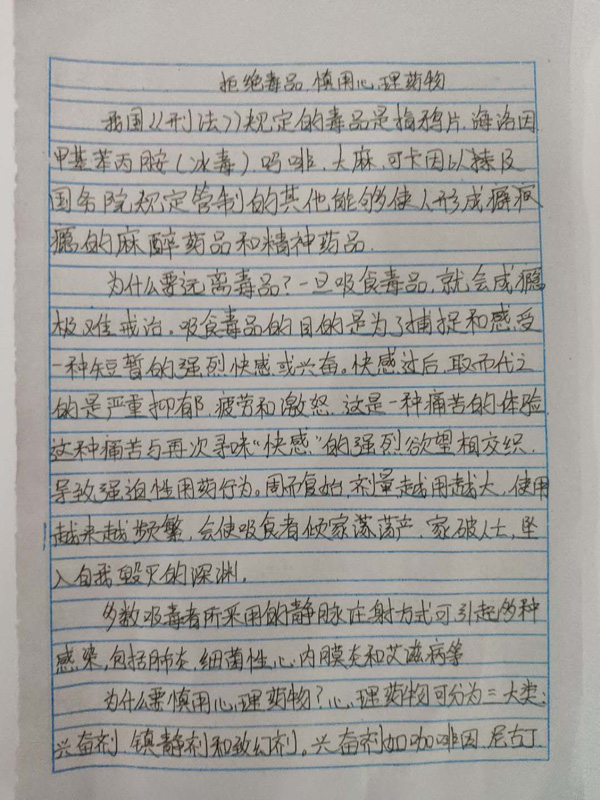 拒绝毒品 慎用心理药物
我国《刑法》规定的毒品是指鸦片、海洛因
甲基苯丙胺（冰毒）、吗啡、大麻、可卡因以及
国务院规定管制的其他能够使人形成癖
瘾的麻醉药品和精神药品.
为什么要远离毒品?一旦吸食毒品,就会成瘾
极难戒治。吸食毒品的目的是为了捕捉和感受
一种短暂的强烈快感或兴奋。快感过后,取而代之
的是严重抑郁、疲劳和激怒.这是一种痛苦的体验.
这种痛苦与再次寻味“快感”的强烈欲望相交织.
导致强迫性用药行为。周而复始,剂量越用越大,使用
越来越频繁,会使吸食者倾家荡产、家破人亡,坠
入自我毁灭的深渊.
多数吸毒者所采用的静脉注射方式可引起多种
感染,包括肺炎,细菌性心内膜炎和艾滋病等
为什么要慎用心理药物?心理药物可分为三大类:
兴奋剂 镇静剂和致幻剂。兴奋剂如咖啡因、尼古丁